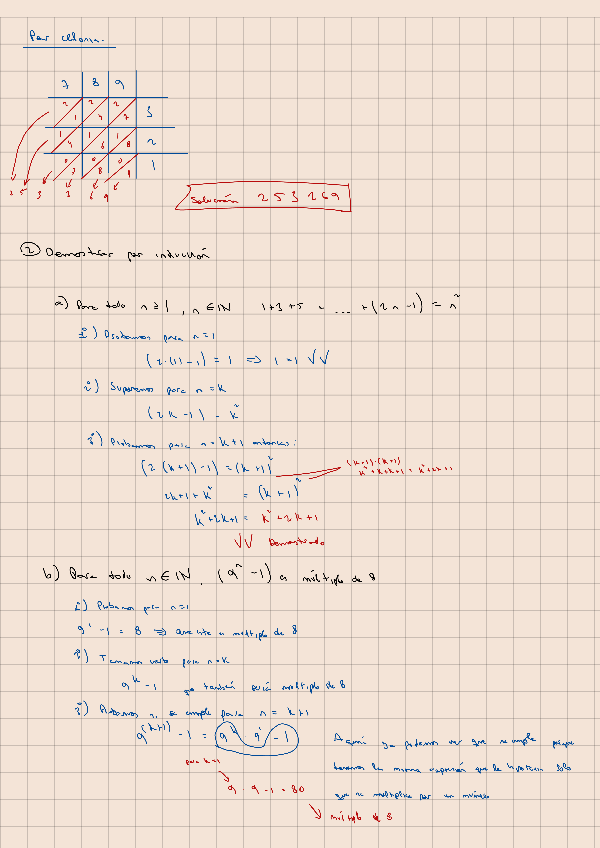 Por celosía.
7 8 9
2 2 2
1 4 7 3
1 1 1
4 6 8 2
0 0 0
7 8 9 1
2 5 3 3 6 9
Solución 2 5 3 2 6 9
② Demostrar por inducción
a) Para todo n ≥ 1, n ∈ IN 1+3+5 + ... + (2n-1) = n²
1º) Probamos para n=1
(2·(1)-1) = 1 ⇒ 1=1 √√
2º) Suponemos para n=k
(2k-1) = k²
3º) Probamos para n=k+1 entonces:
(2(k+1)-1) = (k+1)²
(k+1)·(k+1)
k²+k+k+1 = k²+2k+1
2k+1+k² = (k+1)²
k²+2k+1 = k²+2k+1
√√ Demostrado
b) Para todo n ∈ IN, (9ⁿ-1) es múltiplo de 8
1º) Probamos por n=1
9¹-1 = 8 ⇒ que es múltiplo de 8
2º) Tomamos para n=k
9ᵏ-1 también será múltiplo de 8
3º) Probamos si se cumple para n = k+1
9⁽ᵏ⁺¹⁾-1 = 9ᵏ 9¹-1
para k=1
9·9-1=80
múltiplo de 8
Aquí ya podemos ver que se cumple porque
tenemos la misma expresión que la hipótesis solo
que se multiplica por un número